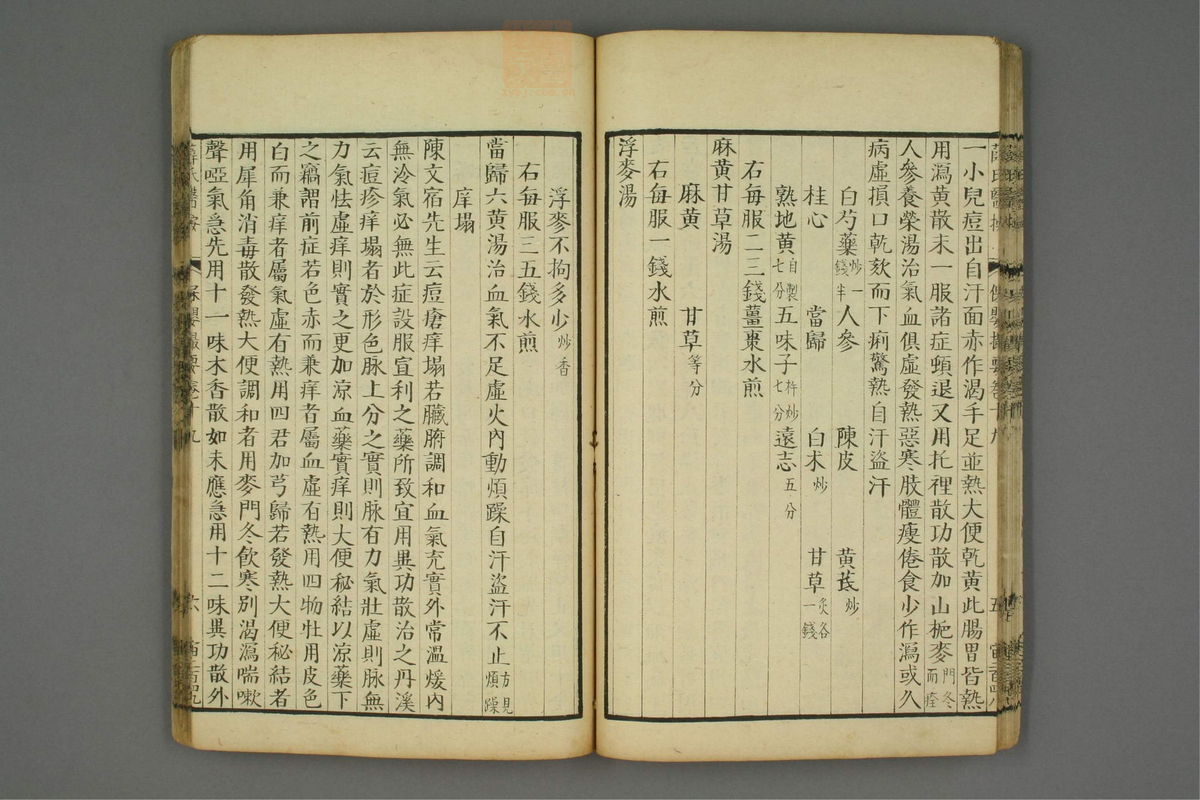 一小兒痘出自汗面赤作渴手足並熱大便乾黃此腸胃皆熱
用瀉黃散末一服諸症頓退又用托裡散功散加山梔麥門冬而痊
人參養榮湯治氣血俱虛發熱惡寒肢體瘦倦食少作瀉或久
病虛損口乾欬而下痢驚熱自汗盜汗
白芍藥炒一錢半 人參 陳皮 黃芪炒
桂心 當歸 白术炒 甘草炙各一錢
熟地黃自製七分 五味子杵炒七分 遠志五分
右每服二三錢薑棗水煎
麻黃甘草湯
麻黃 甘草等分
右每服一錢水煎
浮麥湯
浮麥不拘多少炒香
右每服三五錢水煎
當歸六黃湯治血氣不足虛火內動煩躁自汗盜汗不止方見煩躁
痒塌
陳文宿先生云痘瘡痒塌若臟腑調和血氣充實外常溫煖內
無冷氣必無此症設服宣利之藥所致宜用異功散治之丹溪
云痘疹痒塌者於形色脉上分之實則脉有力氣壯虛則脉無
力氣怯虛痒則實之更加涼血藥實痒則大便秘結以涼藥下
之竊謂前症若色赤而兼痒者屬血虛有熱用四物牡用皮色
白而兼痒者屬氣虛有熱用四君加芎歸若發熱大便秘結者
用犀角消毒散發熱大便調和者用麥門冬飲寒別渴瀉喘嗽
聲啞氣急先用十一味木香散如未應急用十二味異功散外